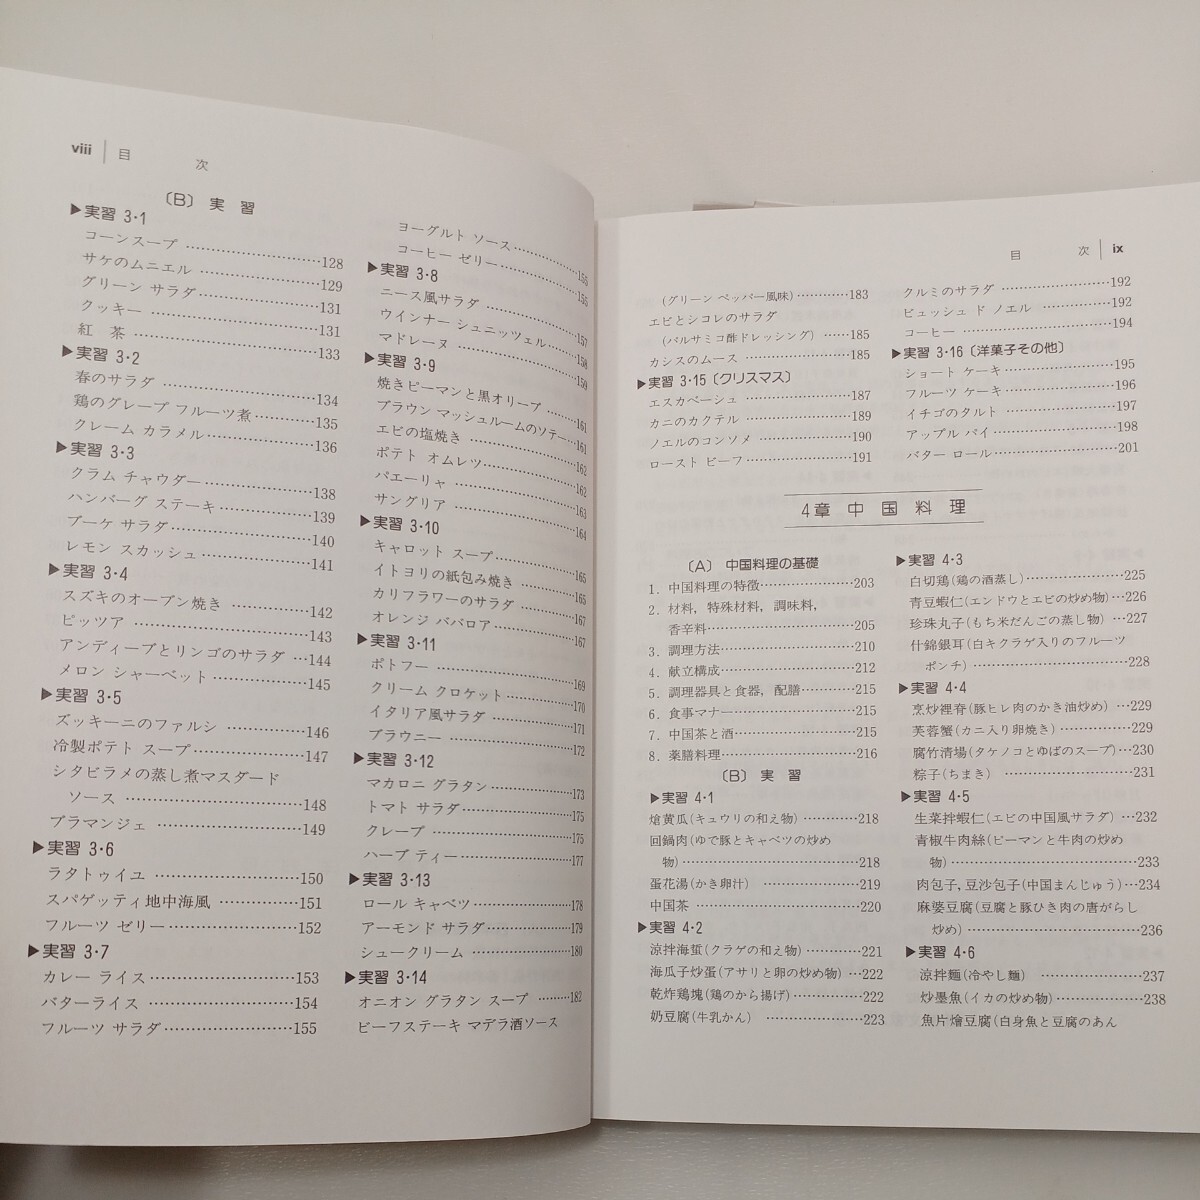 viii 目 次
〔B〕 実 習
▶実習 3・1
コーンスープ ……………………128
サケのムニエル …………………129
グリーン サラダ…………………131
クッキー …………………………131
紅 茶 ……………………………133
▶実習 3・2
春のサラダ ………………………134
鶏のグレープ フルーツ煮………135
クレーム カラメル………………136
▶実習 3・3
クラム チャウダー………………138
ハンバーグ ステーキ……………139
ブーケ サラダ……………………140
レモン スカッシュ………………141
▶実習 3・4
スズキのオーブン焼き …………142
ピッツア …………………………143
アンディーブとリンゴのサラダ …144
メロン シャーベット……………145
▶実習 3・5
ズッキーニのファルシ …………146
冷製ポテト スープ………………147
シタビラメの蒸し煮マスダード
ソース ……………………………148
ブラマンジェ ……………………149
▶実習 3・6
ラタトゥイユ ……………………150
スパゲッティ地中海風 …………151
フルーツ ゼリー…………………152
▶実習 3・7
カレー ライス……………………153
バターライス ……………………154
フルーツ サラダ…………………155
ヨーグルト ソース………………155
コーヒー ゼリー…………………155
▶実習 3・8
ニース風サラダ …………………157
ウインナー シュニッツェル……158
マドレーヌ ………………………159
▶実習 3・9
焼きピーマンと黒オリーブ ……161
ブラウン マッシュルームのソテー…161
エビの塩焼き ……………………162
ポテト オムレツ…………………162
パエーリャ ………………………163
サングリア ………………………164
▶実習 3・10
キャロット スープ………………165
イトヨリの紙包み焼き …………165
カリフラワーのサラダ …………167
オレンジ ババロア………………167
▶実習 3・11
ポトフー …………………………169
クリーム クロケット……………170
イタリア風サラダ ………………171
ブラウニー ………………………172
▶実習 3・12
マカロニ グラタン………………173
トマト サラダ……………………175
クレープ …………………………175
ハーブ ティー……………………177
▶実習 3・13
ロール キャベツ…………………178
アーモンド サラダ………………179
シュークリーム …………………180
▶実習 3・14
オニオン グラタン スープ ………182
ビーフステーキ マデラ酒ソース
目 次 ix
(グリーン ペッパー風味)…………183
エビとシコレのサラダ
(バルサミコ酢ドレッシング) ……185
カシスのムース …………………185
▶実習 3・15〔クリスマス〕
エスカベーシュ …………………187
カニのカクテル …………………189
ノエルのコンソメ ………………190
ロースト ビーフ…………………191
クルミのサラダ …………………192
ビュッシュ ド ノエル ……………192
コーヒー …………………………194
▶実習 3・16〔洋菓子その他〕
ショート ケーキ…………………195
フルーツ ケーキ…………………196
イチゴのタルト …………………197
アップル パイ……………………198
バター ロール……………………201
4章 中 国 料 理
〔A〕 中国料理の基礎
1. 中国料理の特徴…………………203
2. 材料，特殊材料，調味料，
香辛料……………………………205
3. 調理方法…………………………210
4. 献立構成…………………………212
5. 調理器具と食器，配膳…………215
6. 食事マナー………………………215
7. 中国茶と酒………………………215
8. 薬膳料理…………………………216
〔B〕 実 習
▶実習 4・1
熗黄瓜(キュウリの和え物)…………218
回鍋肉(ゆで豚とキャベツの炒め
物)……………………………………218
蛋花湯(かき卵汁) …………………219
中国茶 ………………………………220
▶実習 4・2
涼拌海蜇(クラゲの和え物)…………221
海瓜子炒蛋(アサリと卵の炒め物)…222
乾炸鶏塊(鶏のから揚げ)……………222
奶豆腐(牛乳かん) …………………223
▶実習 4・3
白切鶏(鶏の酒蒸し)…………………225
青豆蝦仁(エンドウとエビの炒め物)…226
珍珠丸子(もち米だんごの蒸し物) …227
什錦銀耳(白キクラゲ入りのフルーツ
ポンチ) ……………………………228
▶実習 4・4
烹炒裡脊(豚ヒレ肉のかき油炒め) …229
芙蓉蟹(カニ入り卵焼き)……………229
腐竹清場(タケノコとゆばのスープ)…230
粽子(ちまき) ………………………231
▶実習 4・5
生菜拌蝦仁(エビの中国風サラダ)…232
青椒牛肉絲(ピーマンと牛肉の炒め
物)……………………………………233
肉包子，豆沙包子(中国まんじゅう)…234
麻婆豆腐(豆腐と豚ひき肉の唐がらし
炒め)…………………………………236
▶実習 4・6
涼拌麺(冷やし麺) …………………237
炒墨魚(イカの炒め物)………………238
魚片燴豆腐(白身魚と豆腐のあん